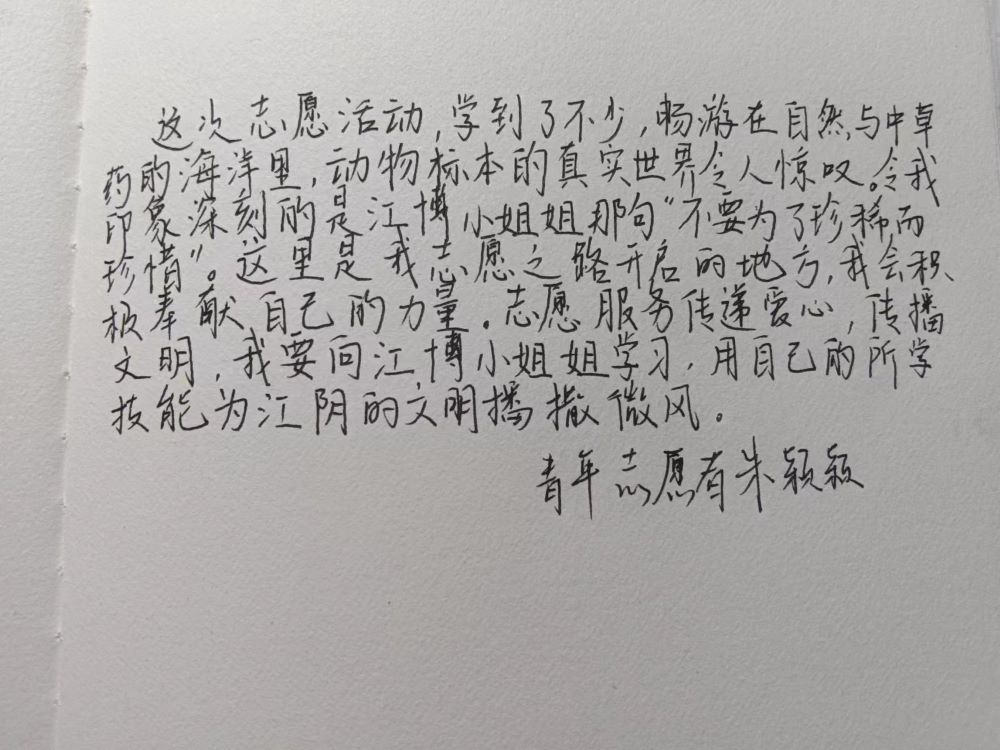 这次志愿活动,学到了不少,畅游在自然,与中草
药的海洋里,动物标本的真实世界令人惊叹。令我
印象深刻的是江博小姐姐那句“不要为了珍稀而
珍惜”。这里是我志愿之路开启的地方,我会积
极奉献自己的力量。志愿服务传递爱心,传播
文明,我要向江博小姐姐学习,用自己的所学
技能为江阴的文明播撒微风。
青年志愿者朱颖颖